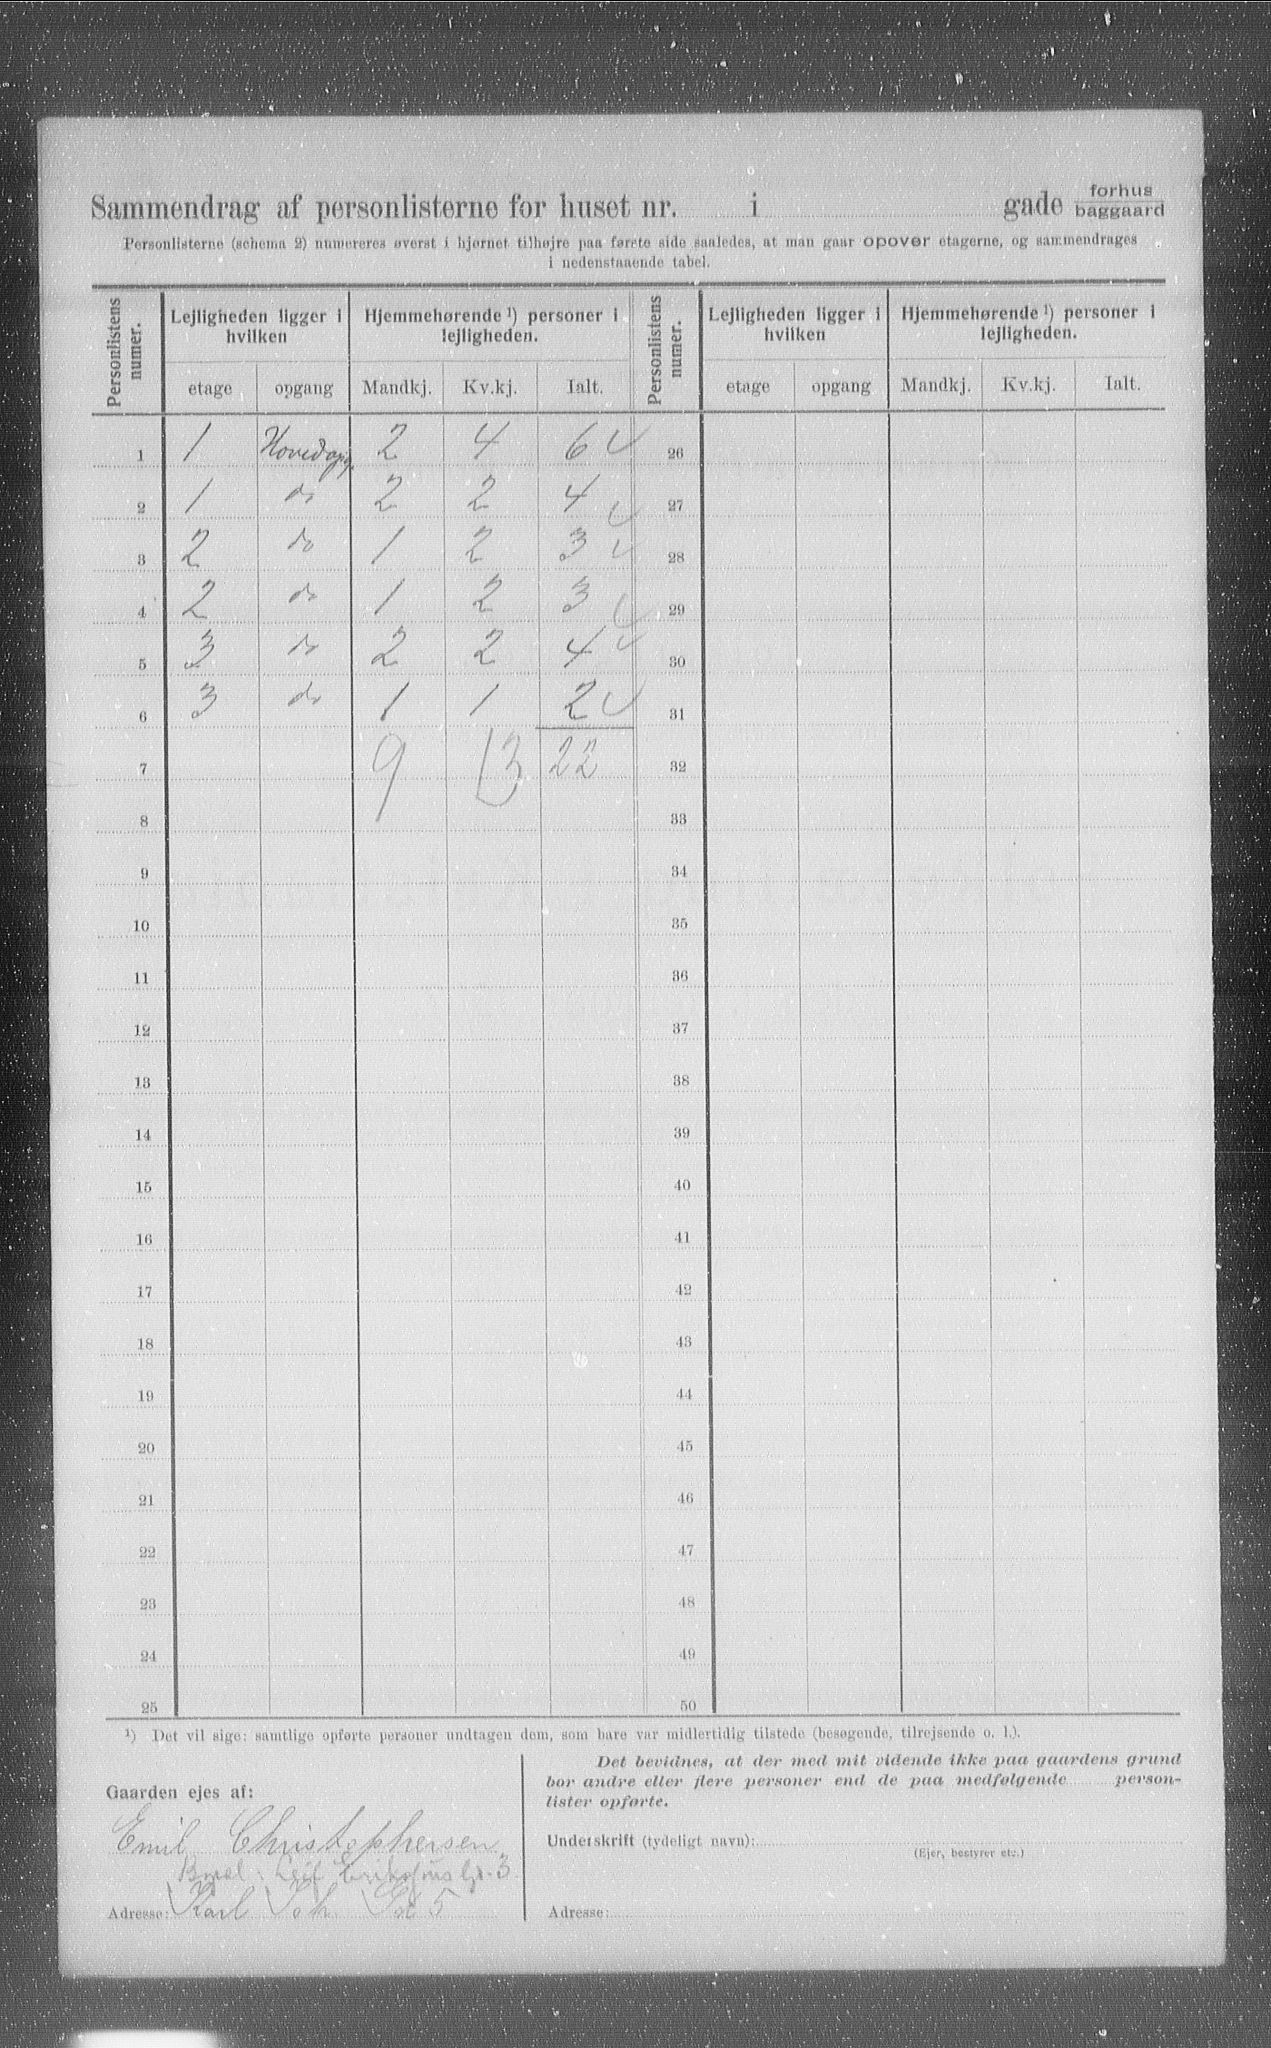 Sammendrag af personlisterne for huset nr. i gade forhus
baggaard
Personlisterne (schema 2) numereres øverst i hjørnet tilhøjre paa første side saaledes, at man gaar opover etagerne, og sammendrages
i nedenstaaende tabel.
Personlistens numer. Lejligheden ligger i hvilken Hjemmehørende ¹) personer i lejligheden. Personlistens numer. Lejligheden ligger i hvilken Hjemmehørende ¹) personer i lejligheden.
etage opgang Mandkj. Kv.kj. Ialt. etage opgang Mandkj. Kv.kj. Ialt.
1 1 Hovedopg. 2 4 6 26
2 1 do 2 2 4 27
3 2 do 1 2 3 28
4 2 do 1 2 3 29
5 3 do 2 2 4 30
6 3 do 1 1 2 31
7 9 13 22 32
8 33
9 34
10 35
11 36
12 37
13 38
14 39
15 40
16 41
17 42
18 43
19 44
20 45
21 46
22 47
23 48
24 49
25 50
¹) Det vil sige: samtlige opførte personer undtagen dem, som bare var midlertidig tilstede (besøgende, tilrejsende o. l.).
Gaarden ejes af:
Emil Christophersen
3
Adresse: Karl Joh. Gd 5
Det bevidnes, at der med mit vidende ikke paa gaardens grund
bor andre eller flere personer end de paa medfølgende person-
lister opførte.
Underskrift (tydeligt navn):
(Ejer, bestyrer etc.)
Adresse: